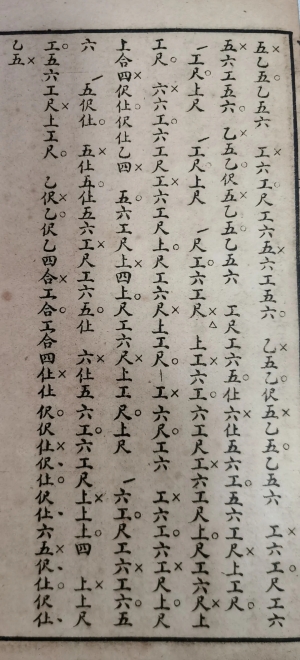 五乙五乙五六 工六工尺工六五六工五六 乙五乙伬五乙五乙五六 工六工尺工六
五六工五六 乙五乙伬五乙五乙五六 工尺工六五仕六仕五六工五六工尺上工尺
一工尺上尺 一工尺上尺 一尺工六工尺 上工六工六工尺工六工尺上尺工六尺上
工尺 六六工六工尺工六工尺上尺工六尺上工尺一工六尺工六 工六工六工尺上尺
上合四伬仕伬仕乙四 五六工尺上四上尺工六尺上工尺上尺 一六工尺工六工六五
六 五伬仕 五仕五仕五六工尺工六五仕 六仕五六工六工尺上上上四 上上尺
工五六工尺上工尺 乙伬乙伬乙四合工合工合四仕仕伬伬仕伬仕伬仕六五伬仕伬仕
乙五